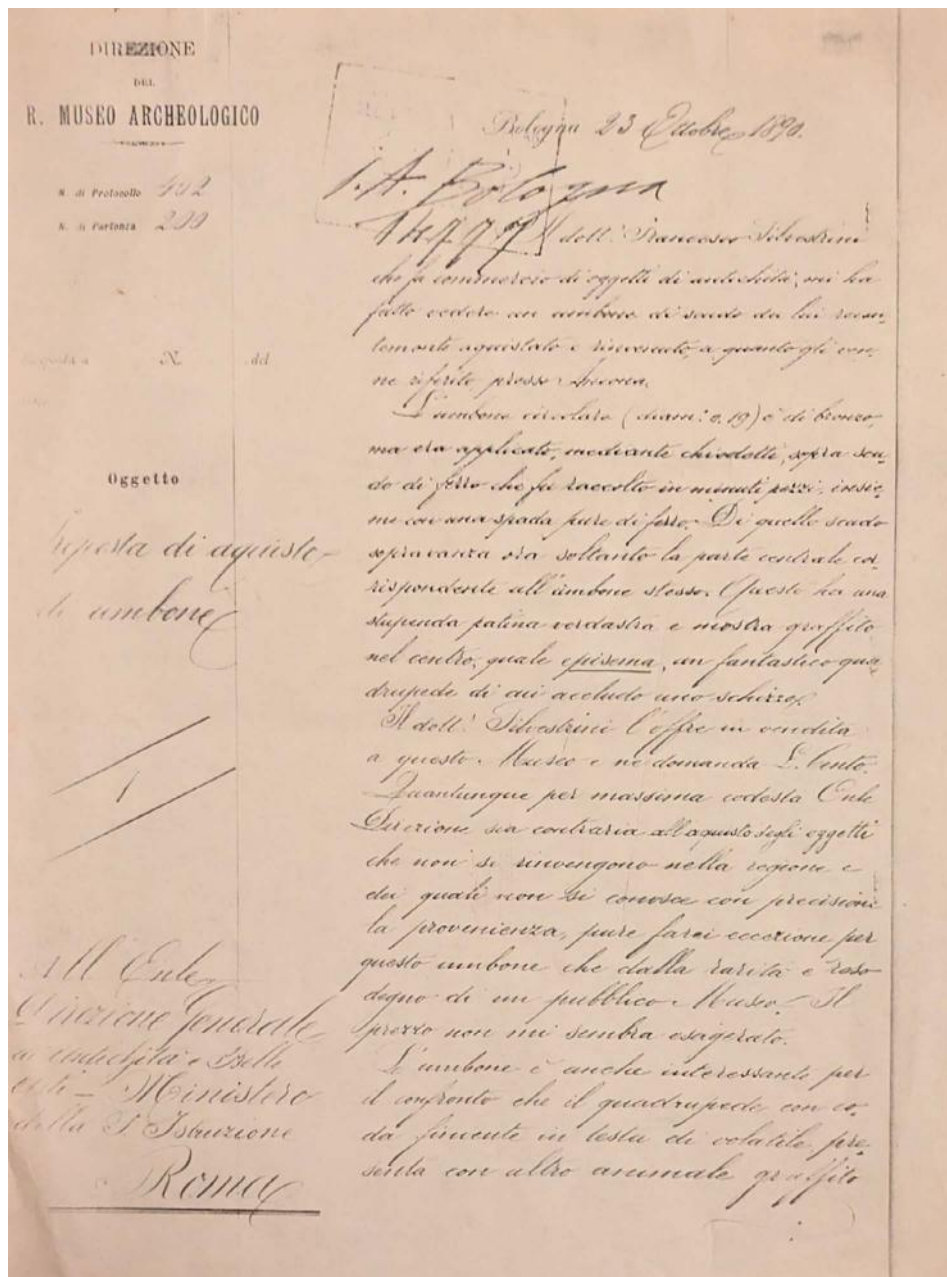 DIREZIONE
DEL
R. MUSEO ARCHEOLOGICO
N. di Protocollo 402
N. di Partenza 200
N. del
Oggetto
di aquisto
di umbone
1
All' Onle
Direzione Generale
Antichità e Belle
Arti - Ministero
della P. Istruzione
Roma
Bologna 23 Ottobre 1890.
1. A. Bologna
Il dott: Francesco Silvestrini
che fa commercio di oggetti di antichità, mi ha
fatto vedere un umbone di scudo da lui recen-
temente aquistato e rinvenuto, a quanto gli ven-
ne riferito presso Ancona.
L'umbone circolare (diam: 0.19) è di bronzo,
ma era applicato, mediante chiodetti, sopra scu-
do di ferro che fu raccolto in minuti pezzi, insie-
me con una spada pure di ferro. Di quello scudo
sopravanza ora soltanto la parte centrale cor-
rispondente all'umbone stesso. Questo ha una
stupenda patina verdastra e mostra graffito
nel centro, quale episema, un fantastico qua-
drupede di cui accludo uno schizzo.
Il dott: Silvestrini l'offre in vendita
a questo Museo e ne domanda L. Cento.
Quantunque per massima codesta Onle
Direzione sia contraria all'aquisto degli oggetti
che non si rinvengono nella regione e
dei quali non si conosce con precisione
la provenienza, pure farei eccezione per
questo umbone che dalla rarità è reso
degno di un pubblico Museo. Il
prezzo non mi sembra esagerato.
L'umbone è anche interessante per
il confronto che il quadrupede con co-
da finente in testa di volatile pre-
senta con altro animale graffito